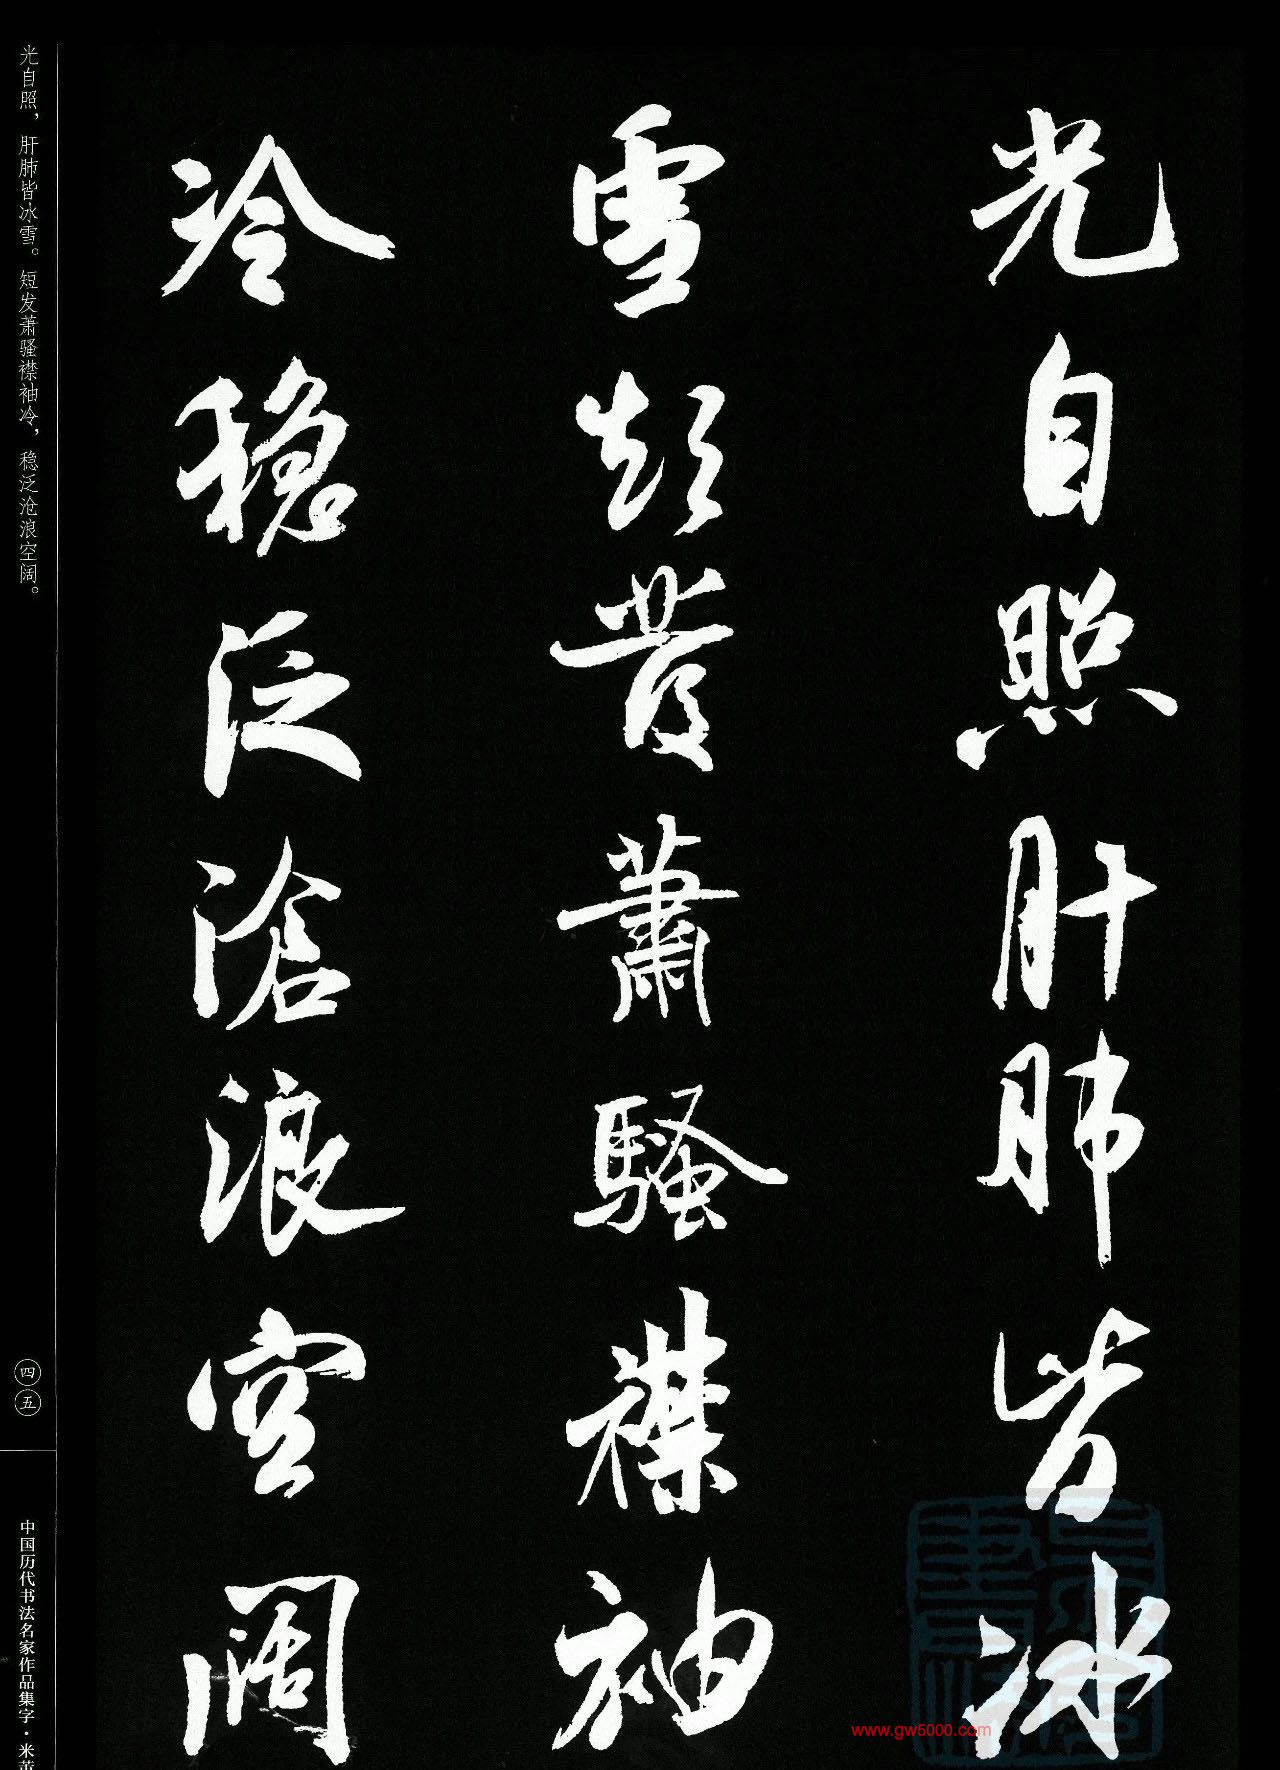 光自照肝肺皆冰
雪短發蕭騷襟袖
冷穩泛滄浪空闊
光自照，肝肺皆冰雪。短发萧骚襟袖冷，稳泛沧浪空阔。
四五
中国历代书法名家作品集字·米芾
www.gw5000.com